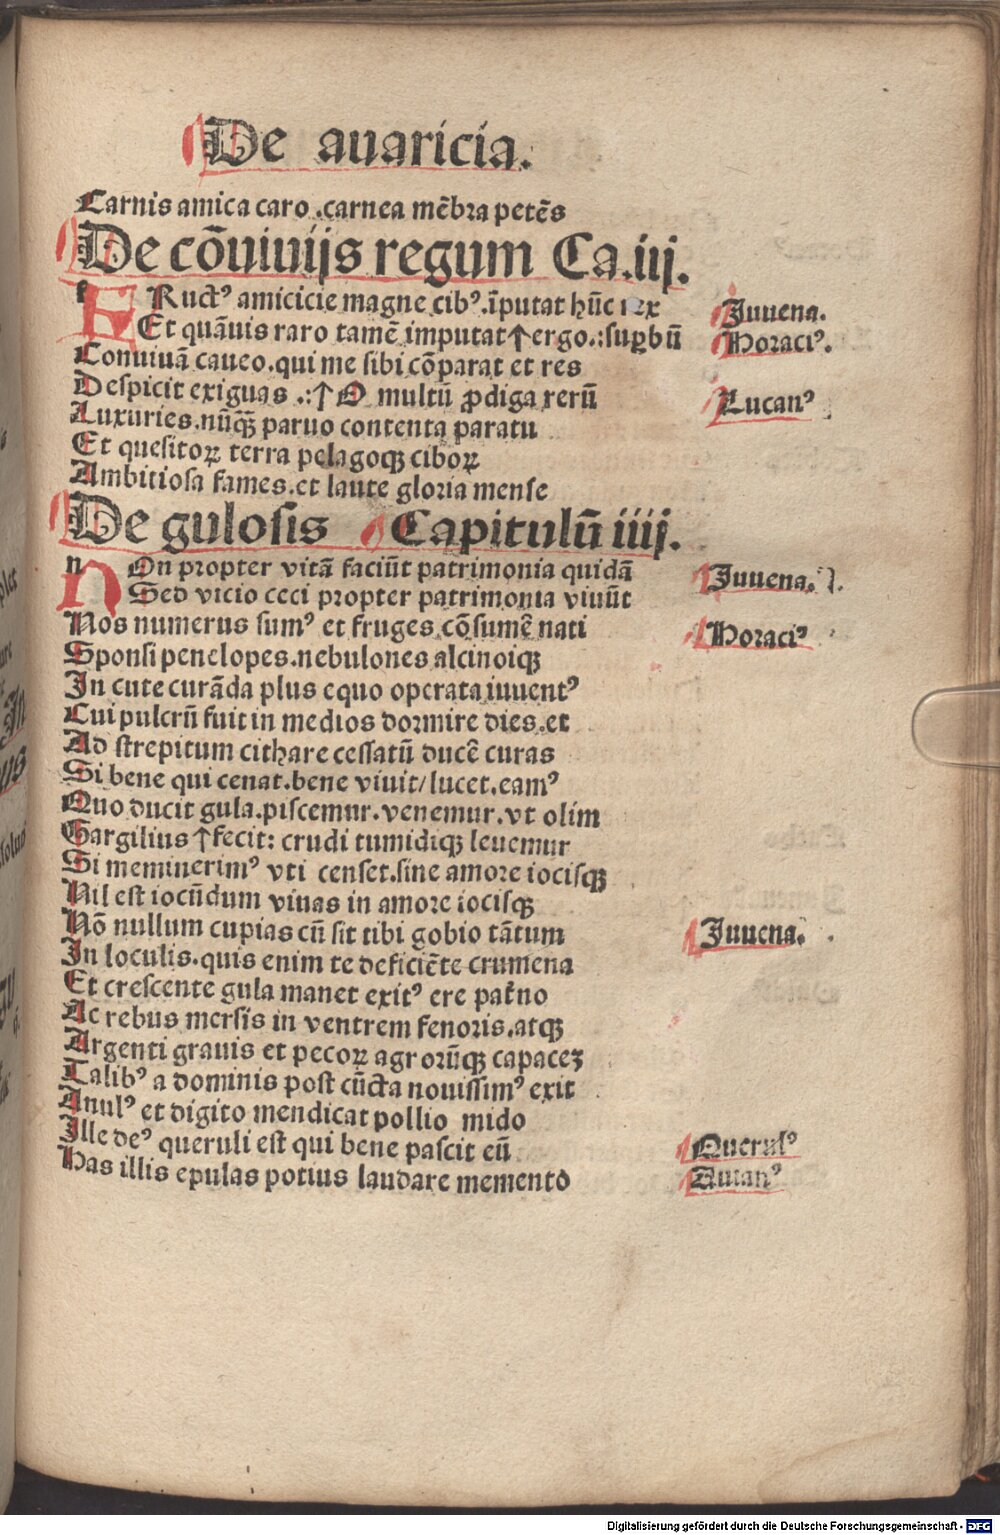 De auaricia.
Carnis amica caro .carnea mēbra petēs
De cōuiuijs regum Ca.iij.
FRuctꝰ amicicie magne cibꝰ.īputat hūc rex Juuena.
Et quāuis raro tamē imputat↑ergo.:suꝑbū Horaciꝰ.
Conuiuā caueo.qui me sibi cōparat et res
Despicit exiguas .:↑O multū ꝓdiga rerū Lucanꝰ
Luxuries.nūqꝫ paruo contenta paratu
Et quesitoꝝ terra pelagoqꝫ ciboꝝ
Ambitiosa fames.et laute gloria mense
De gulosis Capitulū iiij.
nOn propter vitā faciūt patrimonia quidā Juuena.
Sed vicio ceci propter patrimonia viuūt
Nos numerus sumꝰ et fruges cōsumē nati Horaciꝰ
Sponsi penelopes.nebulones alcinoiqꝫ
In cute curāda plus equo operata iuuentꝰ
Cui pulcrū fuit in medios dormire dies.et
Ad strepitum cithare cessatū ducē curas
Si bene qui cenat.bene viuit/lucet.eamꝰ
Quo ducit gula.piscemur.venemur.vt olim
Gargilius↑fecit: crudi tumidiqꝫ leuemur
Si meminerimꝰ vti censet.sine amore iocisqꝫ
Nil est iocūdum viuas in amore iocisqꝫ
Nō nullum cupias cū sit tibi gobio tātum Juuena.
In loculis.quis enim te deficiēte crumena
Et crescente gula manet exitꝰ ere pat̄no
Ac rebus mersis in ventrem fenoris.atqꝫ
Argenti grauis et pecoꝝ agrorūqꝫ capaceꝫ
Talibꝰ a dominis post cūcta nouissimꝰ exit
Anulꝰ et digito mendicat pollio mido
Ille deꝰ queruli est qui bene pascit eū Querulꝰ
Has illis epulas potius laudare memento Auianꝰ
Digitalisierung gefördert durch die Deutsche Forschungsgemeinschaft - DFG